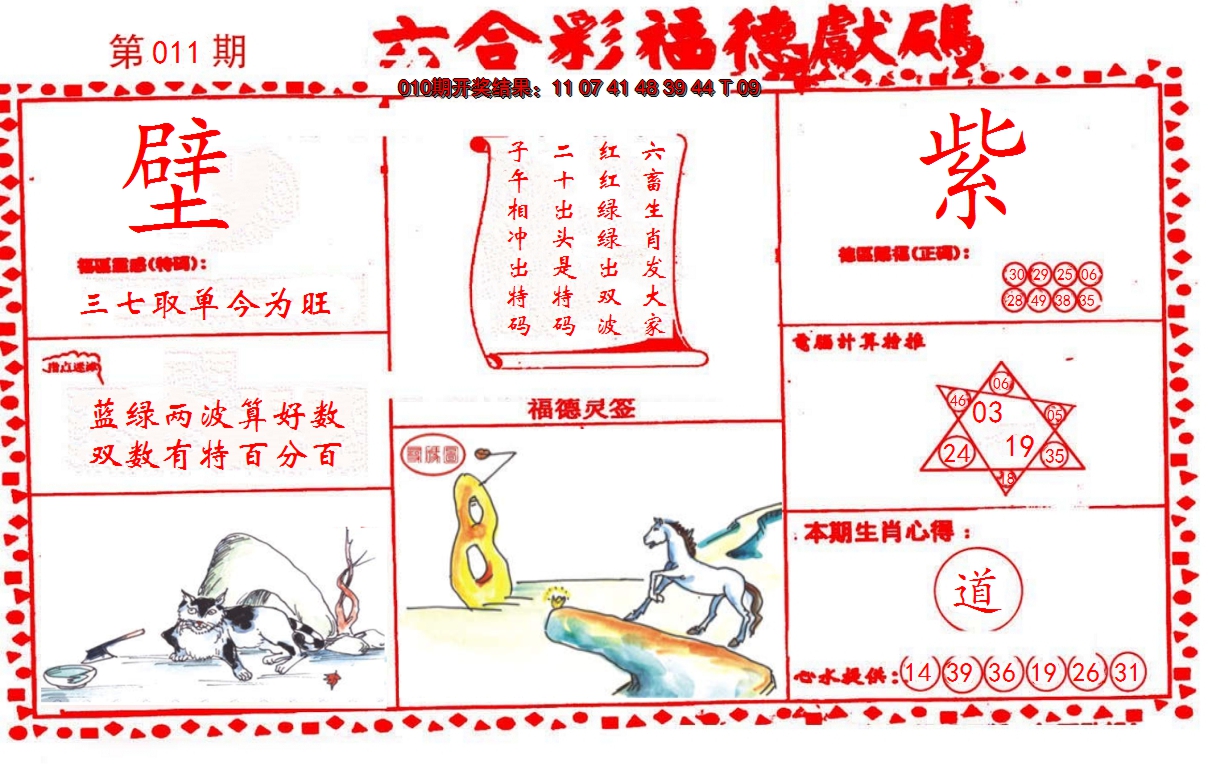 六合彩福德獻碼
第011期
010期开奖结果：11 07 41 48 39 44 T 09
壁
福區靈感(特碼)：
三七取单今为旺
指点迷津
蓝绿两波算好数
双数有特百分百
六畜生肖发大家
红红绿绿出双波
二十出头是特码
子午相冲出特码
福德灵签
紫
德區賜福(正碼)：
30 29 25 06
28 49 38 35
電腦計算推
06
46
03
05
24
19
35
18
本期生肖心得：
道
心水提供：14 39 36 19 26 31